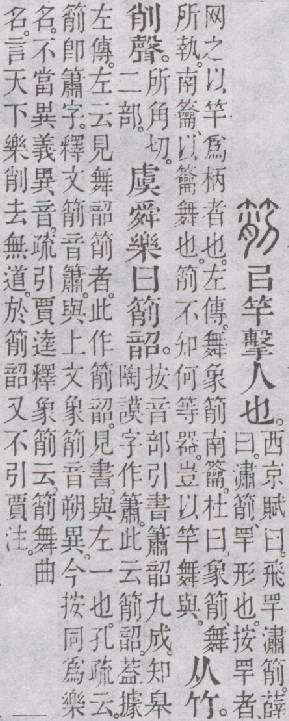 箾 㠯竿擊人也。西京賦曰。飛罕潚箾。薛
曰。潚箾、罕形也。按罕者
网之以竿爲柄者也。左傳。舞象箾南籥。杜曰。象箾、舞
所執。南籥、以籥舞也。箾不知何等器。豈以竿舞與。从竹。
削聲。所角切。二部。虞舜樂曰箾韶。按音部引書簫韶九成知皋
陶謨字作簫。此云箾韶。葢據
左傳。左云見舞韶箾者。此作箾韶。見書與左一也。孔疏云。
箾卽簫字。釋文箾音簫。與上文象箾音朔異。今按同爲樂
名。不當異義異音。疏引賈逵釋象箾云。箾舞曲
名。言天下樂削去無道。於箾韶又不引賈注。